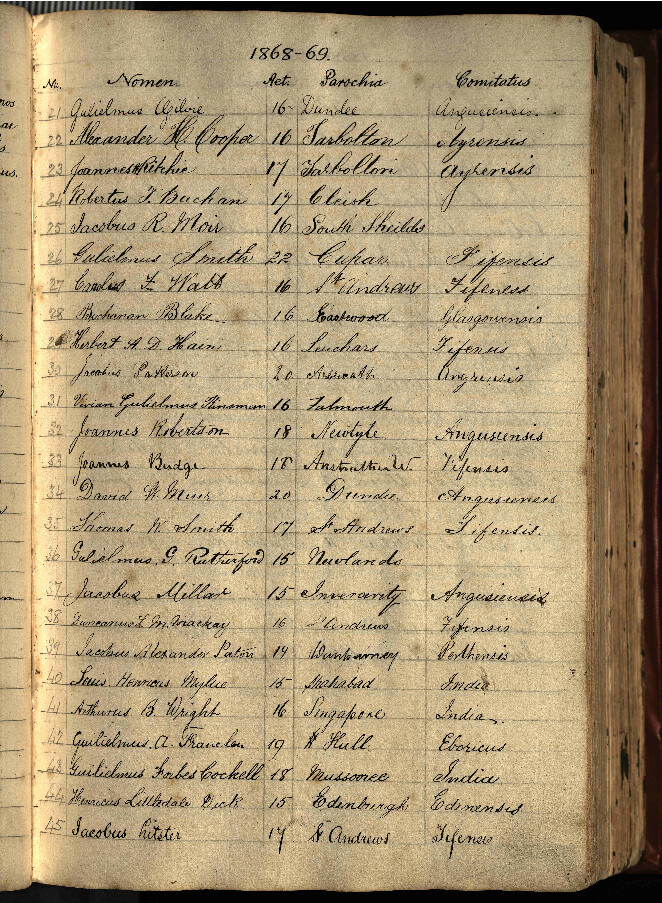 1868-69.
No. Nomen. Aet. Parochia Comitatus
21 Gulielmus Ogilvie 16 Dundee Angusiensis.
22 Alexander H. Cooper 16 Tarbolton Ayrensis
23 Joannes Ritchie 17 Tarbolton Ayrensis
24 Robertus F. Buchan 17 Cleish
25 Jacobus R. Moir 16 South Sheilds
26 Gulielmus Smith 22 Cupar Fifensis
27 Webb 16 St Andrews Fifeness
28 Buchanan Blake 16 Eastwood Glasgowensis
29 Herbert A. D. Hain 16 Leuchars Fifensis
30 Jacobus Paterson 20 Arbroath Angusensis
31 Vivian Gulielmus Kinsman 16 Falmouth
32 Joannes Robertson 18 Newtyle Angusiensis
33 Joannes Budge 18 Anstruther W. Fifensis
34 David W. Muir 20 Dundee Angusiensis
35 Thomas W. Smith 17 St Andrews Fifensis.
36 Gulielmus. G. Rutherford 15 Newlands
37 Jacobus Millar 15 Inverarity Angusiensis
38 Mackay 16 Andrews Fifensis
39 Jacobus Alexander Paton Perthensis
40 Henricus Wyllie 15 India
41 Arthurus B. Wright 16 Singapore India.
42 Gulielmus. A. 19 Hull Eboricus
43 Guilielmus Forbes Cockell 18 Mussooree India
44 Henricus Littledale Dick 15 Edinburgh Edinensis
45 Jacobus Litster 17 St Andrews Fifensis